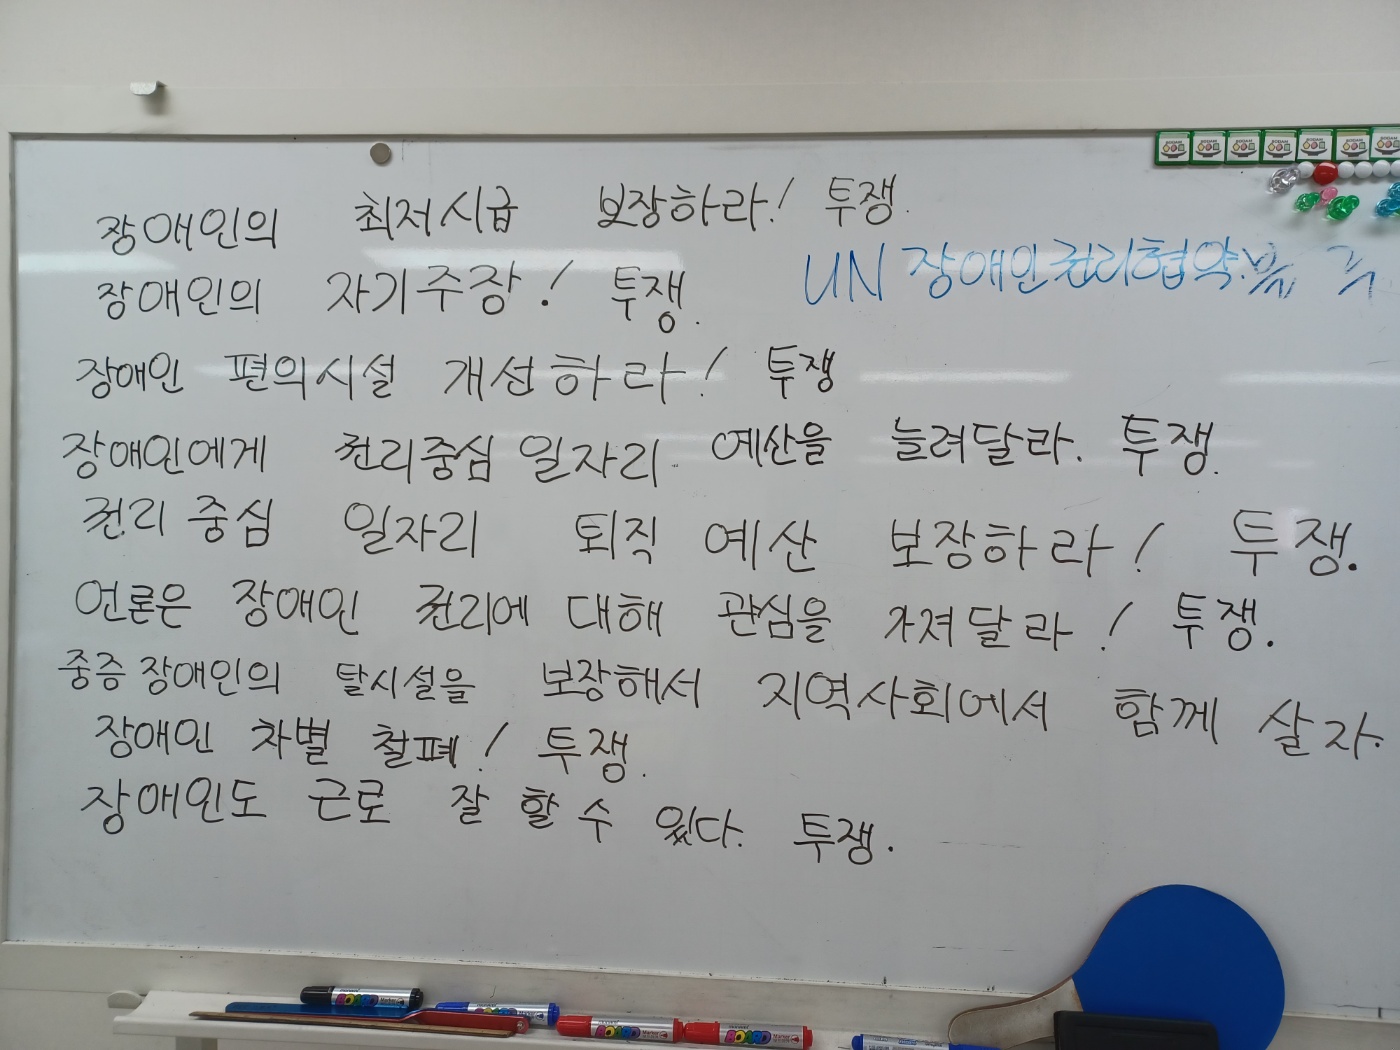 장애인의 최저시급 보장하라! 투쟁.
UN 장애인권리협약
장애인의 자기주장! 투쟁.
장애인 편의시설 개선하라! 투쟁
장애인에게 권리중심 일자리 예산을 늘려달라. 투쟁.
권리 중심 일자리 퇴직 예산 보장하라! 투쟁.
언론은 장애인 권리에 대해 관심을 가져달라! 투쟁.
중증 장애인의 탈시설을 보장해서 지역사회에서 함께 살자.
장애인 차별 철폐! 투쟁.
장애인도 근로 잘 할 수 있다. 투쟁.
BOARD Marker
BOARD Marker
BOARD Marker